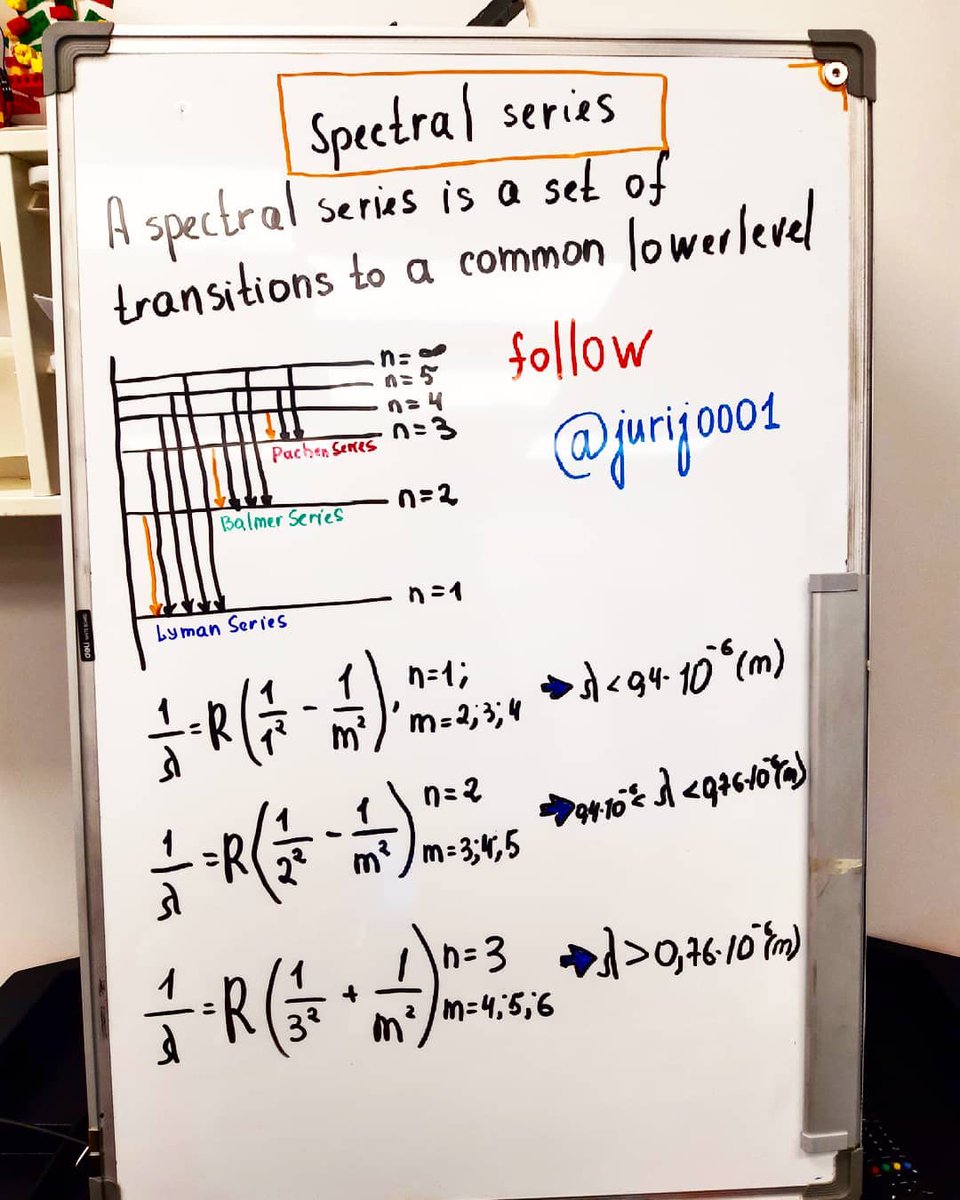 Spectral series
A spectral series is a set of
transitions to a common lower level
n=∞
n=5
n=4
n=3
Pachen Series
n=2
Balmer Series
n=1
Lyman Series
follow
@jurij0001
1/λ = R(1/1² - 1/m²), n=1; m=2;3;4 → λ < 0,4·10⁻⁶(m)
1/λ = R(1/2² - 1/m²) n=2 m=3;4;5 → 0,4·10⁻⁶ < λ < 0,76·10⁻⁶(m)
1/λ = R(1/3² + 1/m²) n=3 m=4;5;6 → λ > 0,76·10⁻⁶(m)